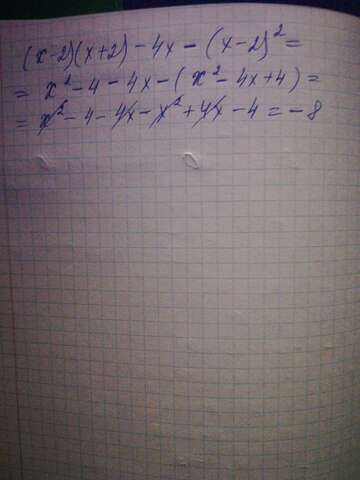 (x-2)(x+2)-4x-(x-2)²=
= x²-4-4x-(x²-4x+4)=
= x²-4-4x-x²+4x-4=-8